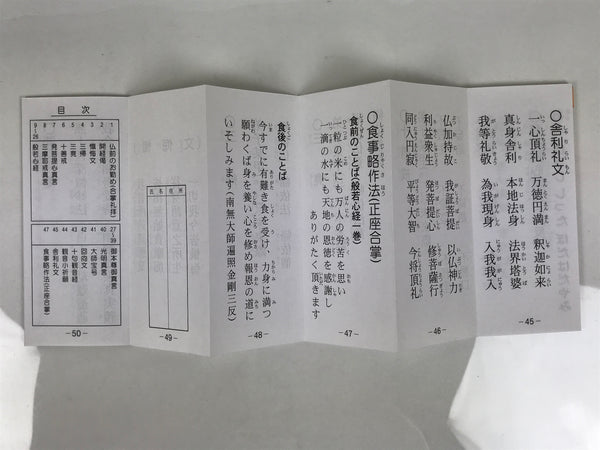 ○舎利礼文
一心頂礼　万徳円満　釈迦如来
真身舎利　本地法身　法界塔婆
我等礼敬　為我現身　入我我入
－45－
仏加持故　我証菩提　以仏神力
利益衆生　発菩提心　修菩薩行
同入円寂　平等大智　今将頂礼
－46－
○食事略作法(正座合掌)
食前のことば(般若心経一巻)
一粒の米にも万人の労苦を思い
一滴の水にも天地の恩徳を感謝し
ありがたく頂きます
－47－
食後のことば
今すでに有難き食を受け、力身に満つ
願わくば身を養い心を修め報恩の道に
いそしみます(南無大師遍照金剛三反)
－48－
氏名
住所
－49－
目次
1 仏前のお勤め(合掌礼拝)
2 開経偈
3 懺悔文
4 三帰
5 三竟
6 十善戒
7 発菩提心真言
8 三摩耶戒真言
9～26 般若心経
27～39 御本尊御真言
40 光明真言
41 大師宝号
42 回向文
43 十句観音経
44 観音小祈願
45 舎利礼文
47 食事略作法(正座合掌)
－50－